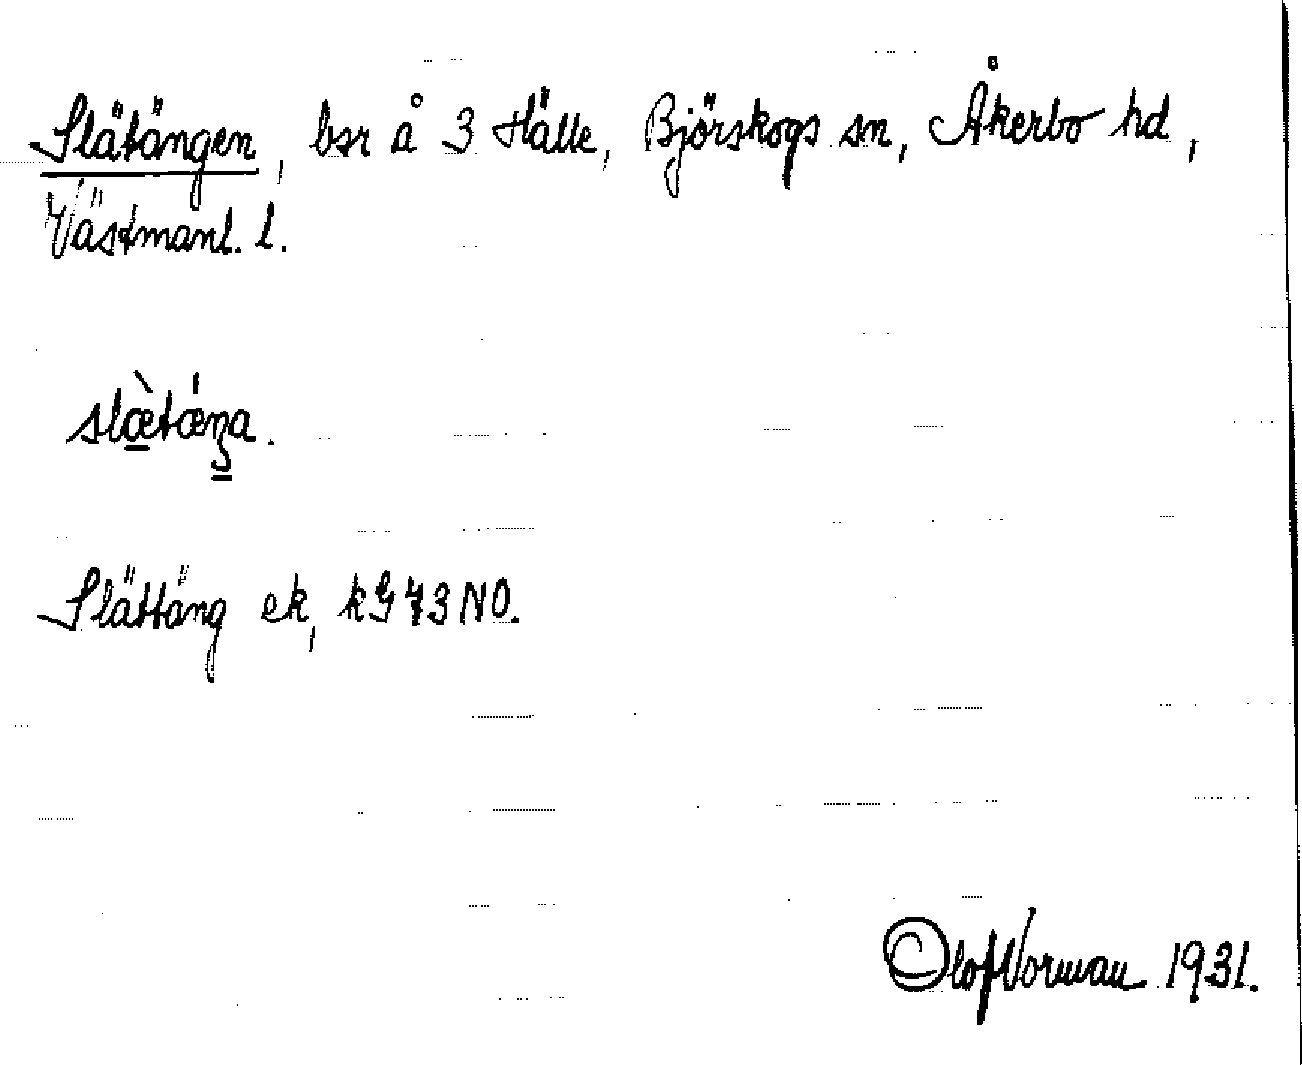 Slätängen, bsr å 3 Hälle, Björskogs sn, Åkerbo hd,
Västmanl. l.
slæ̀tǽŋa.
Slättäng ek, kG 73 NO.
Olof Norman 1931.